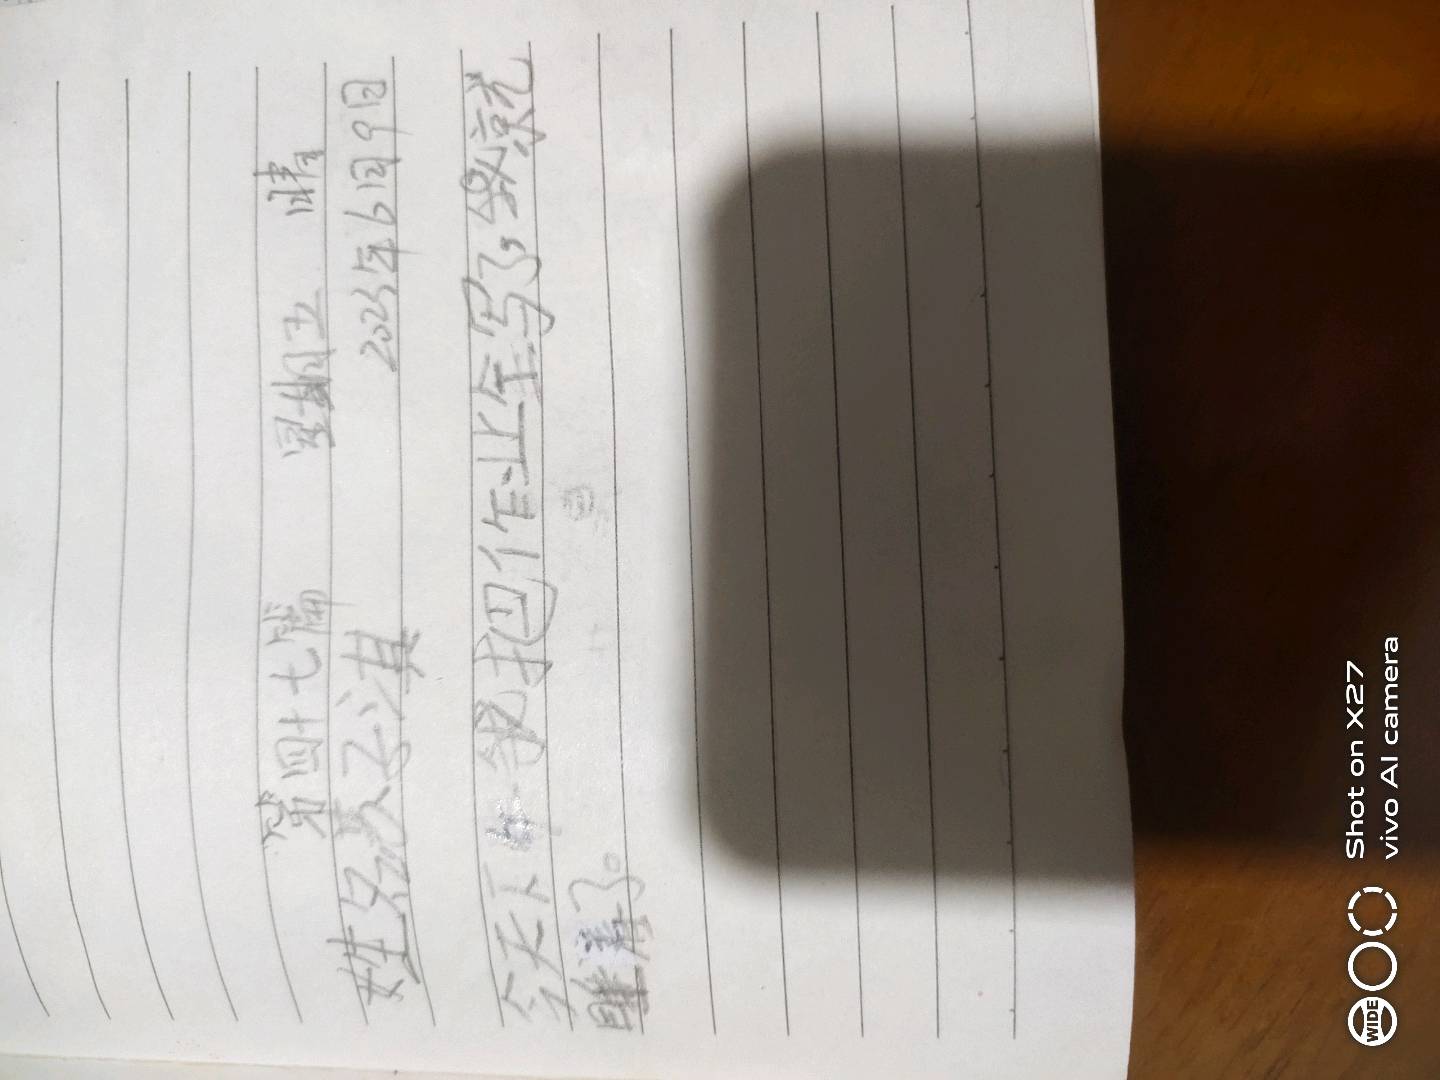 第四十七篇 星期五 晴
姓名 淇 2023年6月9日
今天下午我把作业全写了,然就
睡着了。
Shot on X27
vivo AI camera
WIDE